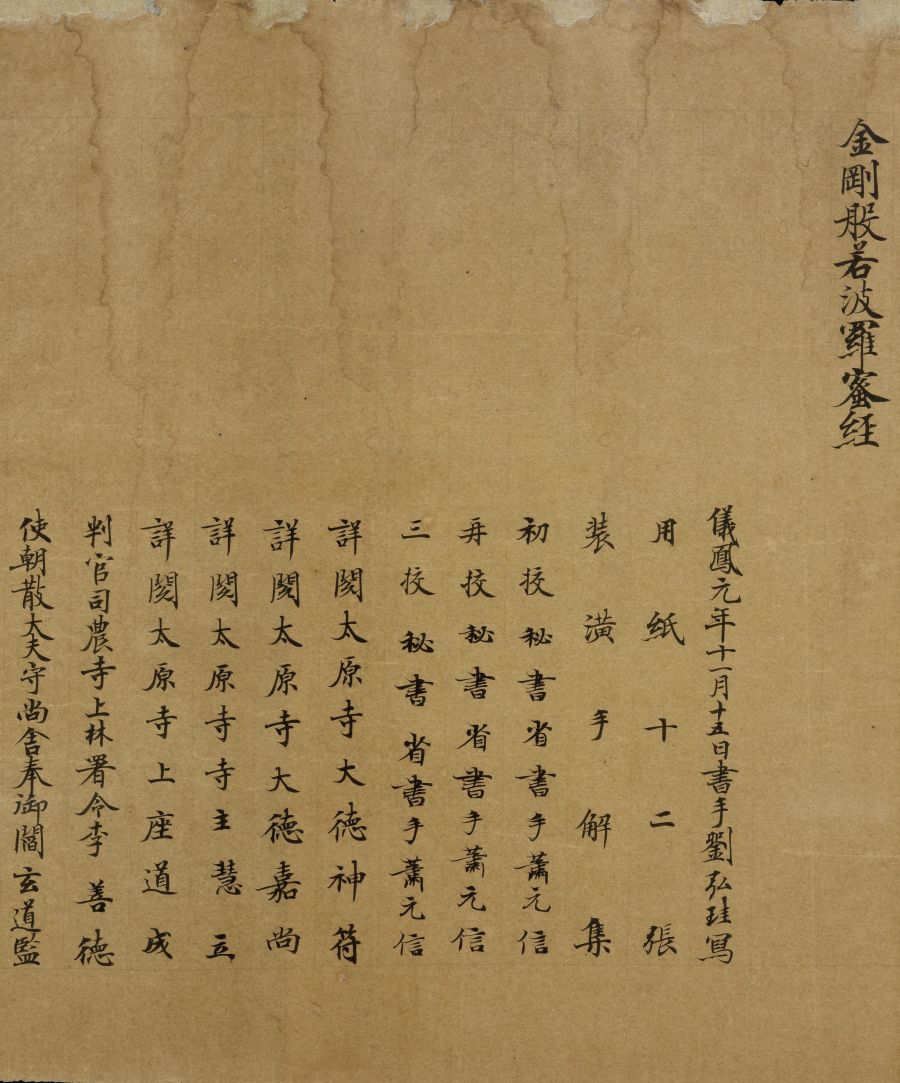 金剛般若波羅蜜經
儀鳳元年十一月十五日書手劉弘珪寫
用紙十二張
装潢手解集
初挍秘書省書手蕭元信
再挍秘書省書手蕭元信
三挍秘書省書手蕭元信
詳閱太原寺大德神符
詳閱太原寺大德嘉尚
詳閱太原寺寺主慧立
詳閱太原寺上座道成
判官司農寺上林署令李善德
使朝散大夫守尚舍奉御閻玄道監